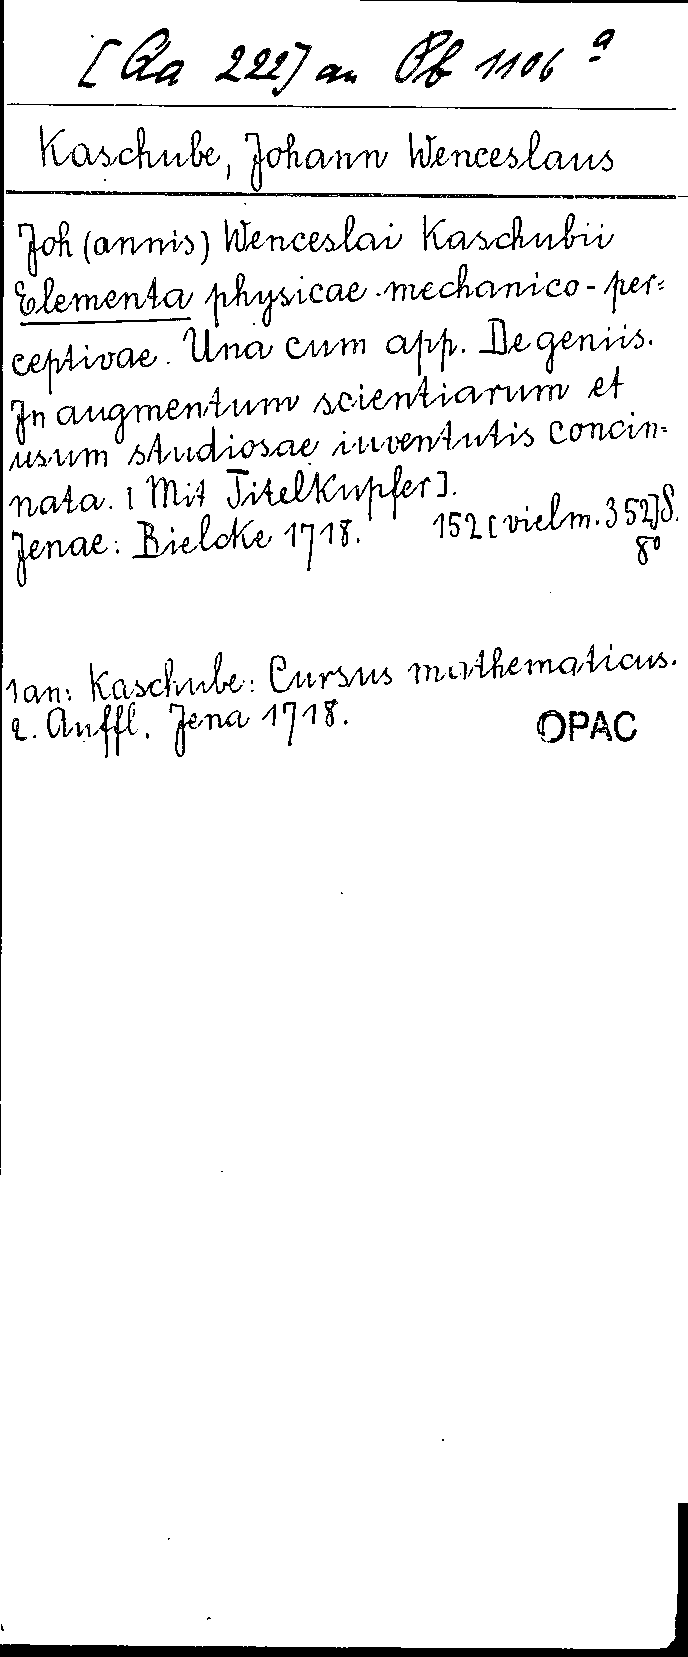 [Qa 222] an Pb 1106 a
Kaschube, Johann Wenceslaus
Joh(annis) Wenceslai Kaschubii
Elementa physicae mechanico-per-
ceptivae. Una cum app. De geniis.
In augmentum scientiarum et
usum studiosae iuventutis concin-
nata. [Mit Titelkupfer].
Jenae: Bielcke 1718. 152 [vielm. 352] S.
8°
1an: Kaschube: Cursus mathematicus.
2. Auffl. Jena 1718.
OPAC